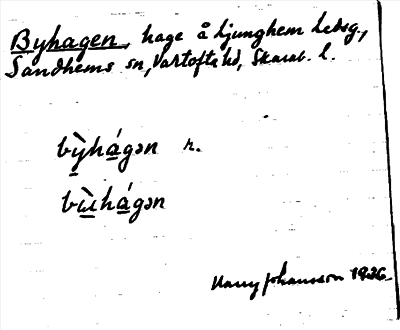 Byhagen, hage å Ljunghem Ledsg.,
Sandhems sn, Vartofta hd, Skarab. l.
bỳ̱há̱gən r.
bɯ̱̀há̱gən
Harry Johansson 1926